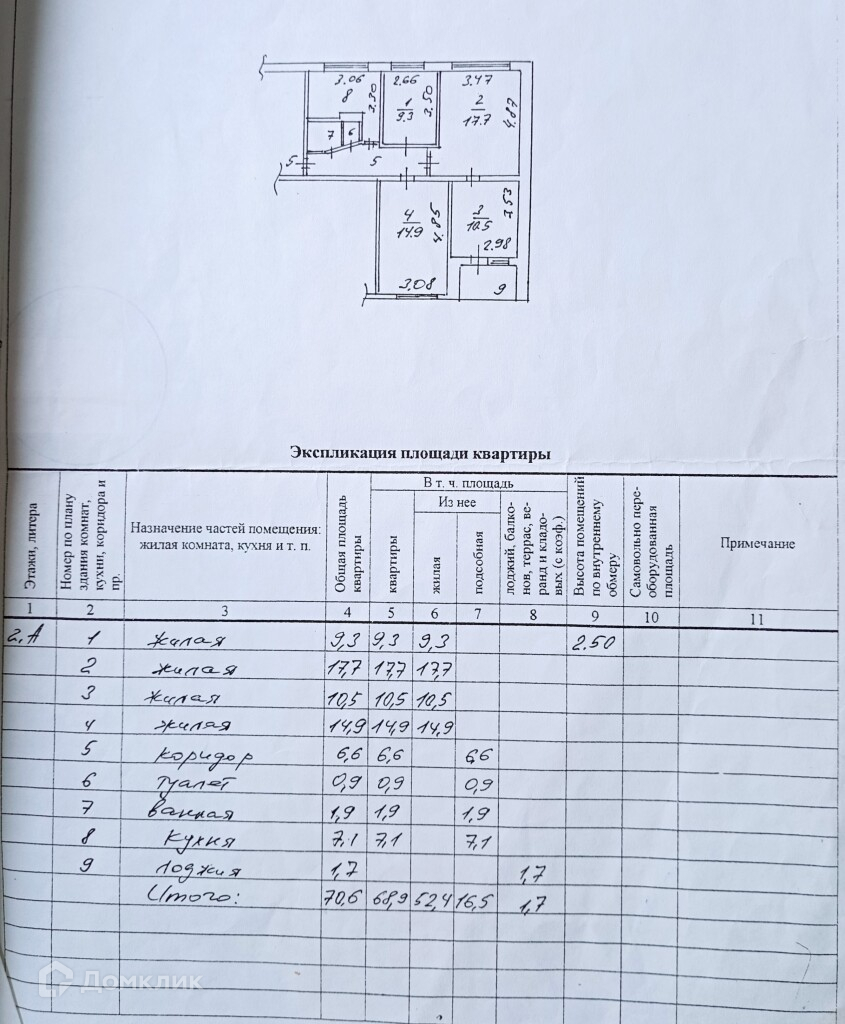 3.06 2.66 3.47
8 3.30 1 3.50 2 4.87
9.3 17.7
7 6
5 5
4 4.85 3 3.53
14.9 10.5
2.98
3,08 9
Экспликация площади квартиры
Этажи, литера
Номер по плану здания комнат, кухни, коридора и пр.
Назначение частей помещения:
жилая комната, кухня и т. п.
Общая площадь квартиры
В т. ч. площадь
квартиры
Из нее
жилая
подсобная
лоджий, балконов, террас, веранд и кладовых (с коэф.)
Высота помещений по внутреннему обмеру
Самовольно пере-оборудованная площадь
Примечание
1 2 3 4 5 6 7 8 9 10 11
2.А 1 жилая 9,3 9,3 9,3 2.50
2 жилая 17,7 17,7 17,7
3 жилая 10,5 10,5 10,5
4 жилая 14,9 14,9 14,9
5 коридор 6,6 6,6 6,6
6 туалет 0,9 0,9 0,9
7 ванная 1,9 1,9 1,9
8 кухня 7,1 7,1 7,1
9 лоджия 1,7 1,7
Итого: 70,6 68,9 52,4 16,5 1,7
Домклик